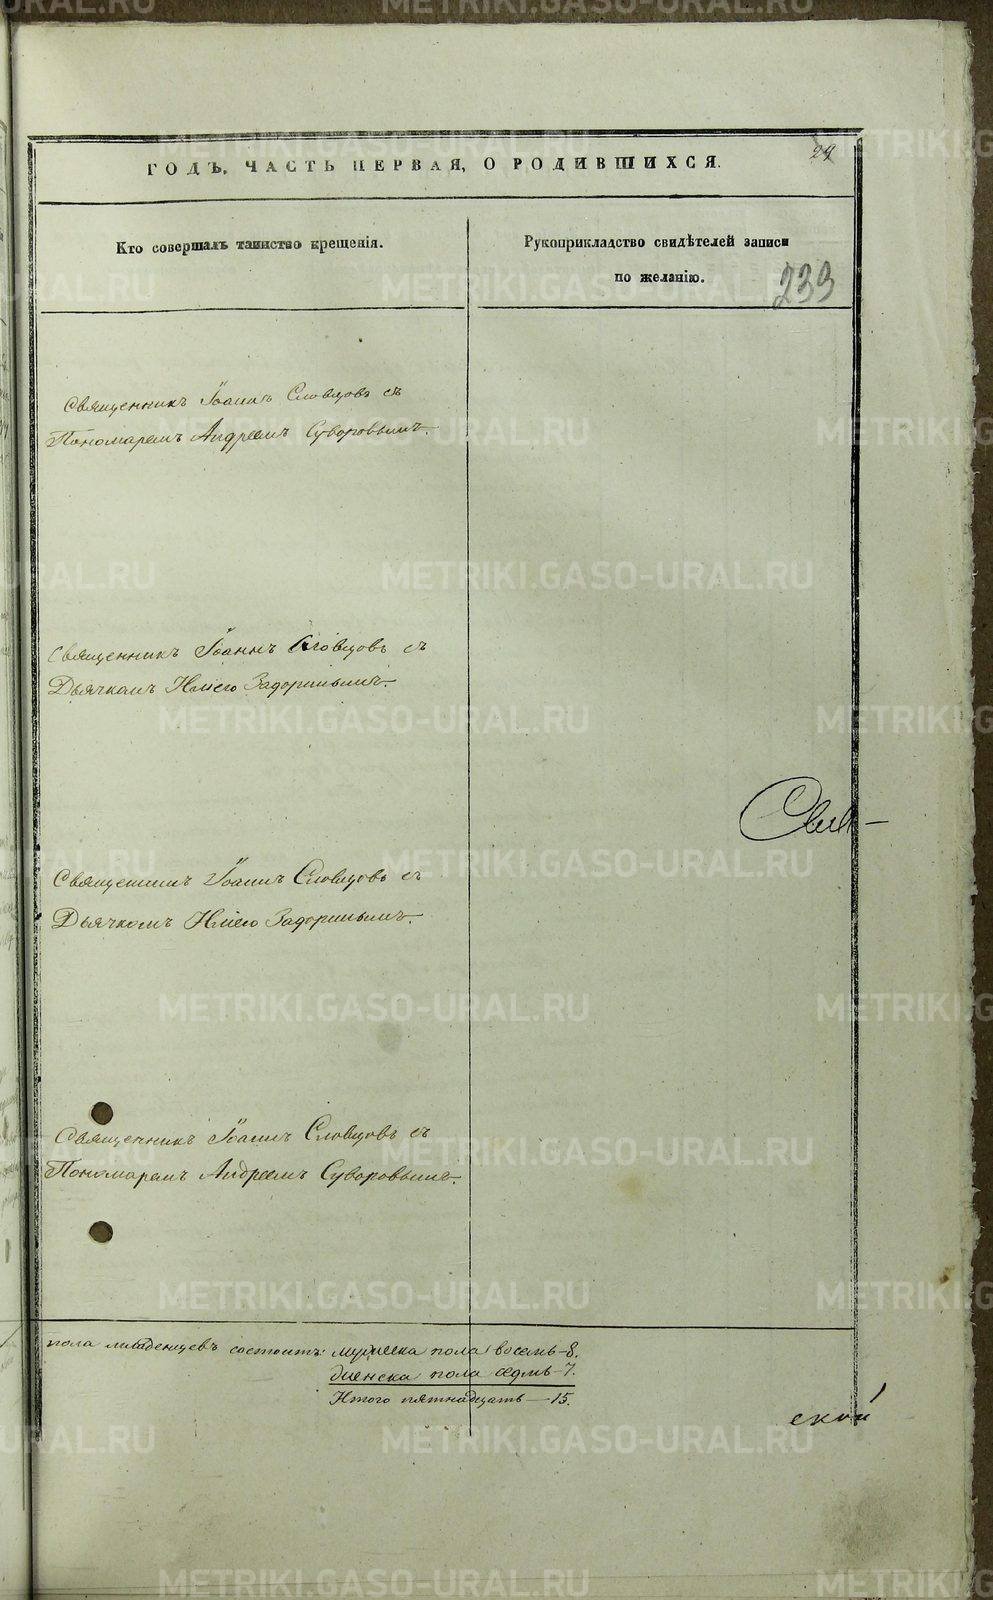 ГОДЪ, ЧАСТЬ ПЕРВАЯ, О РОДИВШИХСЯ.
29
Кто совершалъ таинство крещенія.
Рукоприкладство свидѣтелей записи
по желанію.
233
Священникъ Іоаннъ Словцовъ съ
Пономаремъ Андреемъ Суворовымъ.
Священникъ Іоаннъ Словцовъ съ
Дьячкомъ Задоринымъ.
Священникъ Іоаннъ Словцовъ съ
Дьячкомъ Задоринымъ.
Священникъ Іоаннъ Словцовъ съ
Пономаремъ Андреемъ Суворовымъ.
пола младенцевъ состоитъ: мужеска пола восемь - 8.
женска пола седмь - 7.
Итого пятнадцать — 15.
ской
METRIKI.GASO-URAL.RU